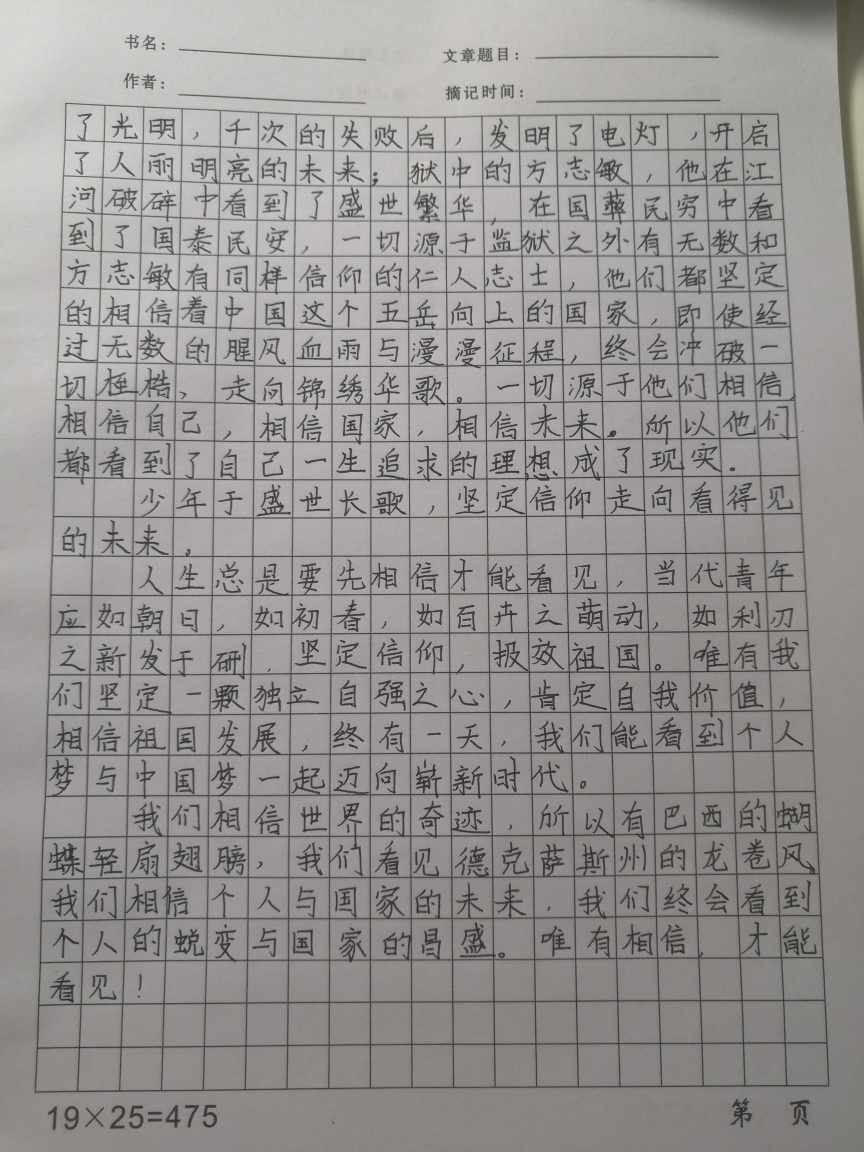 书名：
文章题目：
作者：
摘记时间：
了光明，千次的失败后，发明了电灯，开启
了人丽明亮的未来；狱中的方志敏，他在江
河破碎中看到了盛世繁华，在国弊民穷中看
到了国泰民安，一切源于监狱之外有无数和
方志敏有同样信仰的仁人志士，他们都坚定
的相信着中国这个五岳向上的国家，即使经
过无数的腥风血雨与漫漫征程，终会冲破一
切桎梏，走向锦绣华歌。一切源于他们相信，
相信自己，相信国家，相信未来。所以他们
都看到了自己一生追求的理想成了现实。
少年于盛世长歌，坚定信仰走向看得见
的未来。
人生总是要先相信才能看见，当代青年
应如朝日，如初春，如百卉之萌动，如利刃
之新发于硎，坚定信仰，报效祖国。唯有我
们坚定一颗独立自强之心，肯定自我价值，
相信祖国发展，终有一天，我们能看到个人
梦与中国梦一起迈向崭新时代。
我们相信世界的奇迹，所以有巴西的蝴
蝶轻扇翅膀，我们看见德克萨斯州的龙卷风。
我们相信个人与国家的未来，我们终会看到
个人的蜕变与国家的昌盛。唯有相信，才能
看见！
19×25=475
第 页